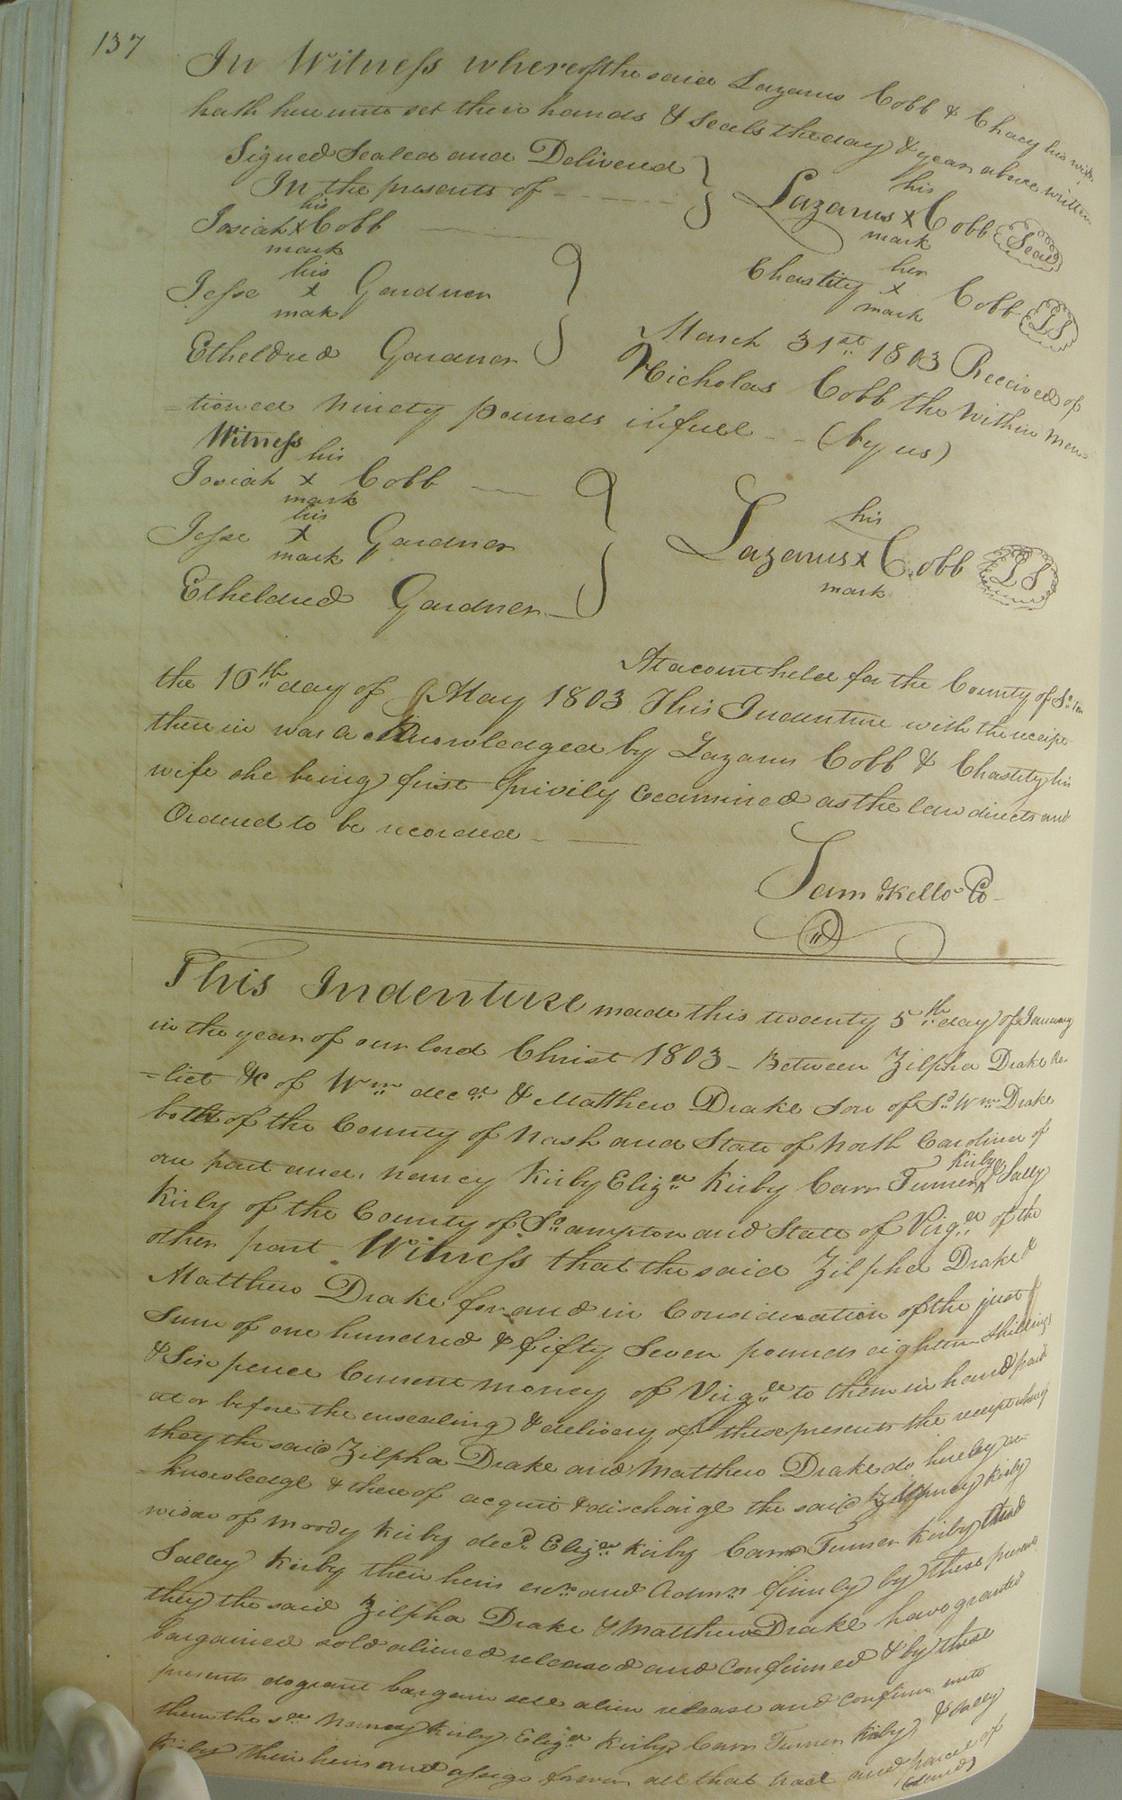 137
In Witness whereof the said Lazarus Cobb & Chacy his wife
hath hereunto set their hands & Seals the day & year above written
Signed Sealed and Delivered
In the presents of
his
Lazarus x Cobb Seal
mark
his
Josiah x Cobb
mark
her
Chastity x Cobb LS
mark
his
Jesse x Gardner
mark
Etheldred Gardner
March 31st 1803 Received of
Nicholas Cobb the within men
=tioned ninety pounds in full - - (by us)
Witness
his
Josiah x Cobb
mark
his
Jesse x Gardner
mark
Etheldred Gardner
his
Lazarus x Cobb LS
mark
At a court held for the County of So.
the 10th day of May 1803 This Indenture with the receipt
therein was acknowledged by Lazarus Cobb & Chastity his
wife she being first privily examined as the law directs and
Ordered to be recorded
Sam Kello Co
This Indenture made this twenty 5th day of January
in the year of our lord Christ 1803 - Between Zilpha Drake Re-
=lict &c of Wm decd & Matthew Drake Son of Sd Wm Drake
both of the County of Nash and State of North Carolina of
one part and Nancy Kirby Elizaa Kirby Carr Turner Kirby & Sally
Kirby of the County of So.ampton and State of Virga of the
other part Witness that the said Zilpha Drake &
Matthew Drake for and in Consideration of the just
Sum of one hundred & fifty Seven pounds eighteen Shillings
& Six pence Current money of Virga to them in hand paid
at or before the ensealing & delivery of these presents the receipt whereof
they the said Zilpha Drake and Matthew Drake do hereby ac
=knowledge & thereof acquit & discharge the said Nancy Kirby
widow of Moody Kirby decd Eliza Kirby Carr Turner Kirby and
Salley Kirby their heirs exrs and Admrs firmly by these presents
they the said Zilpha Drake & Matthew Drake have granted
bargained sold aliened released and Confirmed & by these
presents do grant bargain sell alien release and Confirm unto
them the sd Nancey Kirby Eliza Kirby Carr Turner Kirby & Salley
Kirby their heirs and assigs forever all that tract and parcel of
(Land)